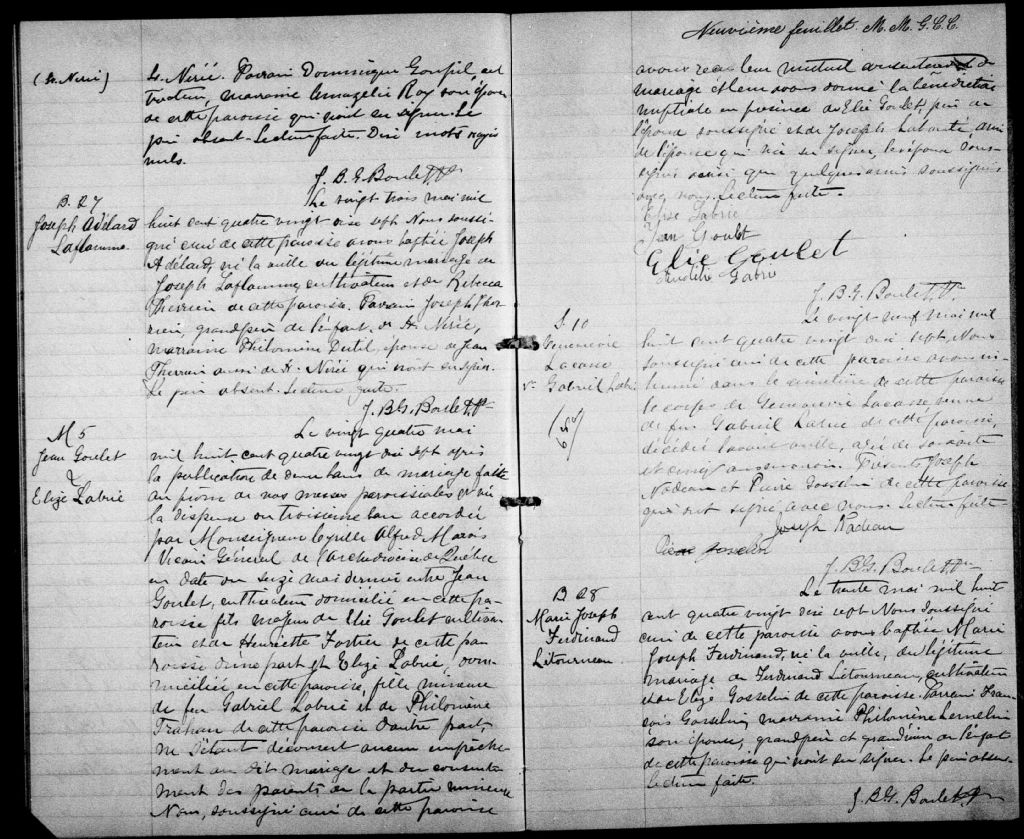 (St. Nérée)
St. Nérée. Parrain Dominique Goupil, cul
tivateur, marraine Amazélie Roy son épouse
de cette paroisse qui n'ont su signer. Le
père absent. Lecture faite. Dix mots rayés
nuls.
J. B. G. Boulet, Ptre
B. 27
Joseph Adélard
Laflamme
Le vingt trois mai mil
huit cent quatre vingt dix sept Nous soussi-
gné curé de cette paroisse avons baptisé Joseph
Adélard, né la veille du légitime mariage de
Joseph Laflamme, cultivateur et de Rébecca
Therrien de cette paroisse. Parrain Joseph Ther
rien grandpère de l'enfant, de St. Nérée,
marraine Philomène Dutil, épouse de Jean
Therrien aussi de St. Nérée qui n'ont su signer.
Le père absent. Lecture faite.
J. B. G. Boulet, Ptre
M 5
Jean Goulet
&
Elizé Labrie
Le vingt quatre mai
mil huit cent quatre vingt dix sept après
la publication de deux bans de mariage faite
au prône de nos messes paroissiales et vu
la dispense du troisième ban accordée
par Monseigneur Cyrille Alfred Marois
Vicaire Général de l'archidiocèse de Québec
en date du seize mai dernier entre Jean
Goulet, cultivateur domicilié en cette pa-
roisse fils majeur de Elie Goulet cultiva-
teur et de Henriette Fortier de cette pa
roisse d'une part et Elizé Labrie, dom-
iciliée en cette paroisse, fille mineure
de feu Gabriel Labrie et de Philomène
Trahan de cette paroisse d'autre part,
ne s'étant découvert aucun empêche-
ment au dit mariage et du consente
ment des parents de la partie mineure
Nous, soussigné curé de cette paroisse
Neuvième feuillet. M. M. G. C. C.
avons reçu leur mutuel consentement de
mariage et leur avons donné la bénédiction
nuptiale en présence de Elie Goulet, père de
l'époux soussigné et de Joseph Labonté, ami
de l'épouse qui n'a su signer, les époux sous-
signés ainsi que quelques amis soussignés
avec nous. Lecture faite.
Elise Labrie
Jean Goulet
Elie Goulet
Labrie
J. B. G. Boulet, Ptre
S. 10
Lacasse
Ve Gabriel Labrie
Le vingt neuf mai mil
huit cent quatre vingt dix sept, Nous
soussigné curé de cette paroisse avons in-
humé dans le cimetière de cette paroisse
le corps de Lacasse veuve
de feu Gabriel Labrie de cette paroisse,
décédée l'avant veille, agée de soixante
et cinq ans environ. Présents Joseph
Nadeau et Pierre Gosselin de cette paroisse
qui ont signé avec nous. Lecture faite
Joseph Nadeau
Pierre Gosselin
J. B. G. Boulet, Ptre
B 28
Marie Joseph
Ferdinand
Létourneau
Le trente mai mil huit
cent quatre vingt dix sept Nous soussigné
curé de cette paroisse avons baptisé Marie
Joseph Ferdinand, né la veille, du légitime
mariage de Ferdinand Létourneau, cultivateur
et de Elizé Gosselin de cette paroisse. Parrain Fran
çois Gosselin, marraine Philomène Lemelin
son épouse, grandpère et grandmère de l'enfant
de cette paroisse qui n'ont su signer. Le père absent.
Lecture faite.
J. B. G. Boulet, Ptre